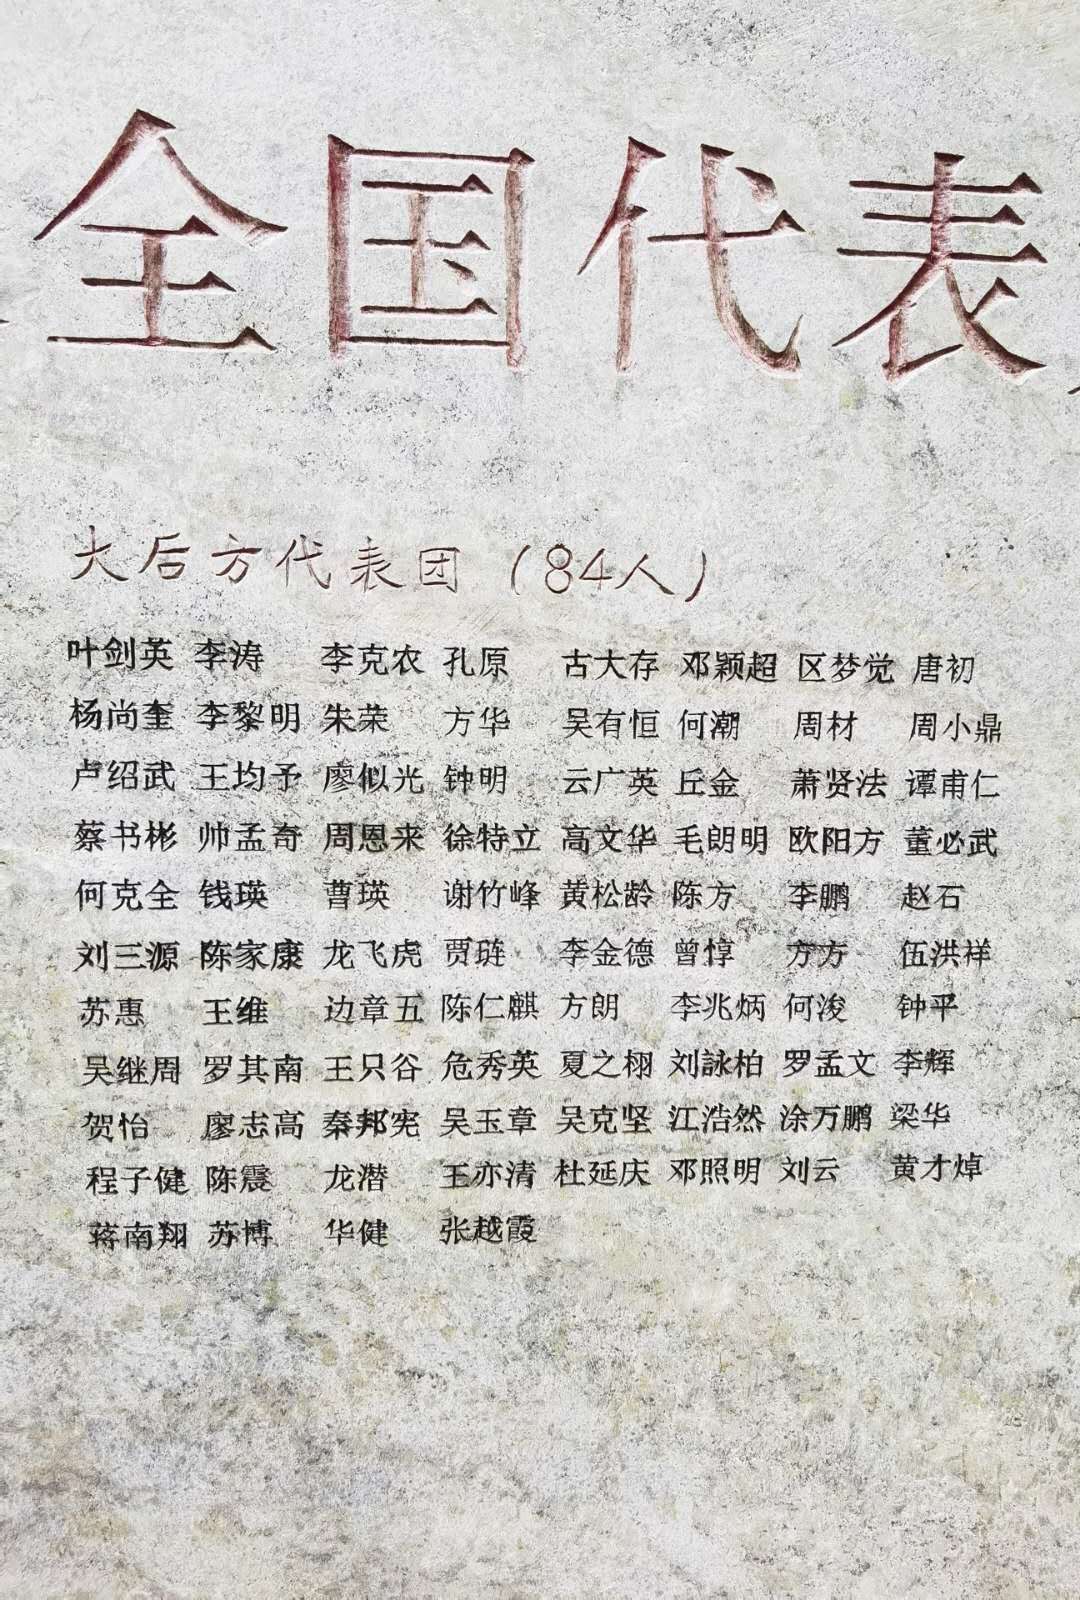 全国代表
大后方代表团（84人）
叶剑英 李涛 李克农 孔原 古大存 邓颖超 区梦觉 唐初
杨尚奎 李黎明 朱荣 方华 吴有恒 何潮 周材 周小鼎
卢绍武 王均予 廖似光 钟明 云广英 丘金 萧贤法 谭甫仁
蔡书彬 帅孟奇 周恩来 徐特立 高文华 毛朗明 欧阳方 董必武
何克全 钱瑛 曹瑛 谢竹峰 黄松龄 陈方 李鹏 赵石
刘三源 陈家康 龙飞虎 贾琏 李金德 曾惇 方方 伍洪祥
苏惠 王维 边章五 陈仁麒 方朗 李兆炳 何浚 钟平
吴继周 罗其南 王只谷 危秀英 夏之栩 刘詠柏 罗孟文 李辉
贺怡 廖志高 秦邦宪 吴玉章 吴克坚 江浩然 涂万鹏 梁华
程子健 陈震 龙潜 王亦清 杜延庆 邓照明 刘云 黄才焯
蒋南翔 苏博 华健 张越霞